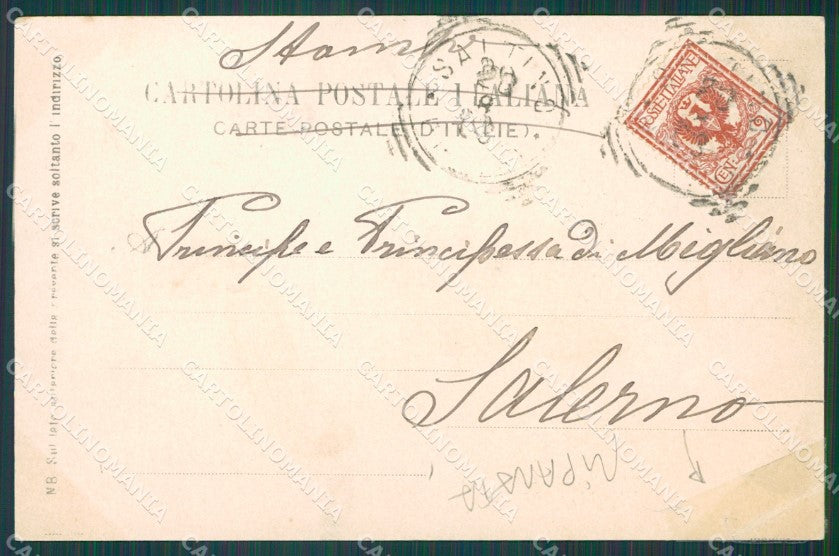 Stampe
CARTOLINA POSTALE ITALIANA
(CARTE POSTALE D'ITALIE).
POSTE ITALIANE
CENT. 2
Principe e Principessa di Migliano
Salerno
RIPARATA
NB. Sul lato anteriore della presente si scrive soltanto l'indirizzo.
CARTOLINOMANIA